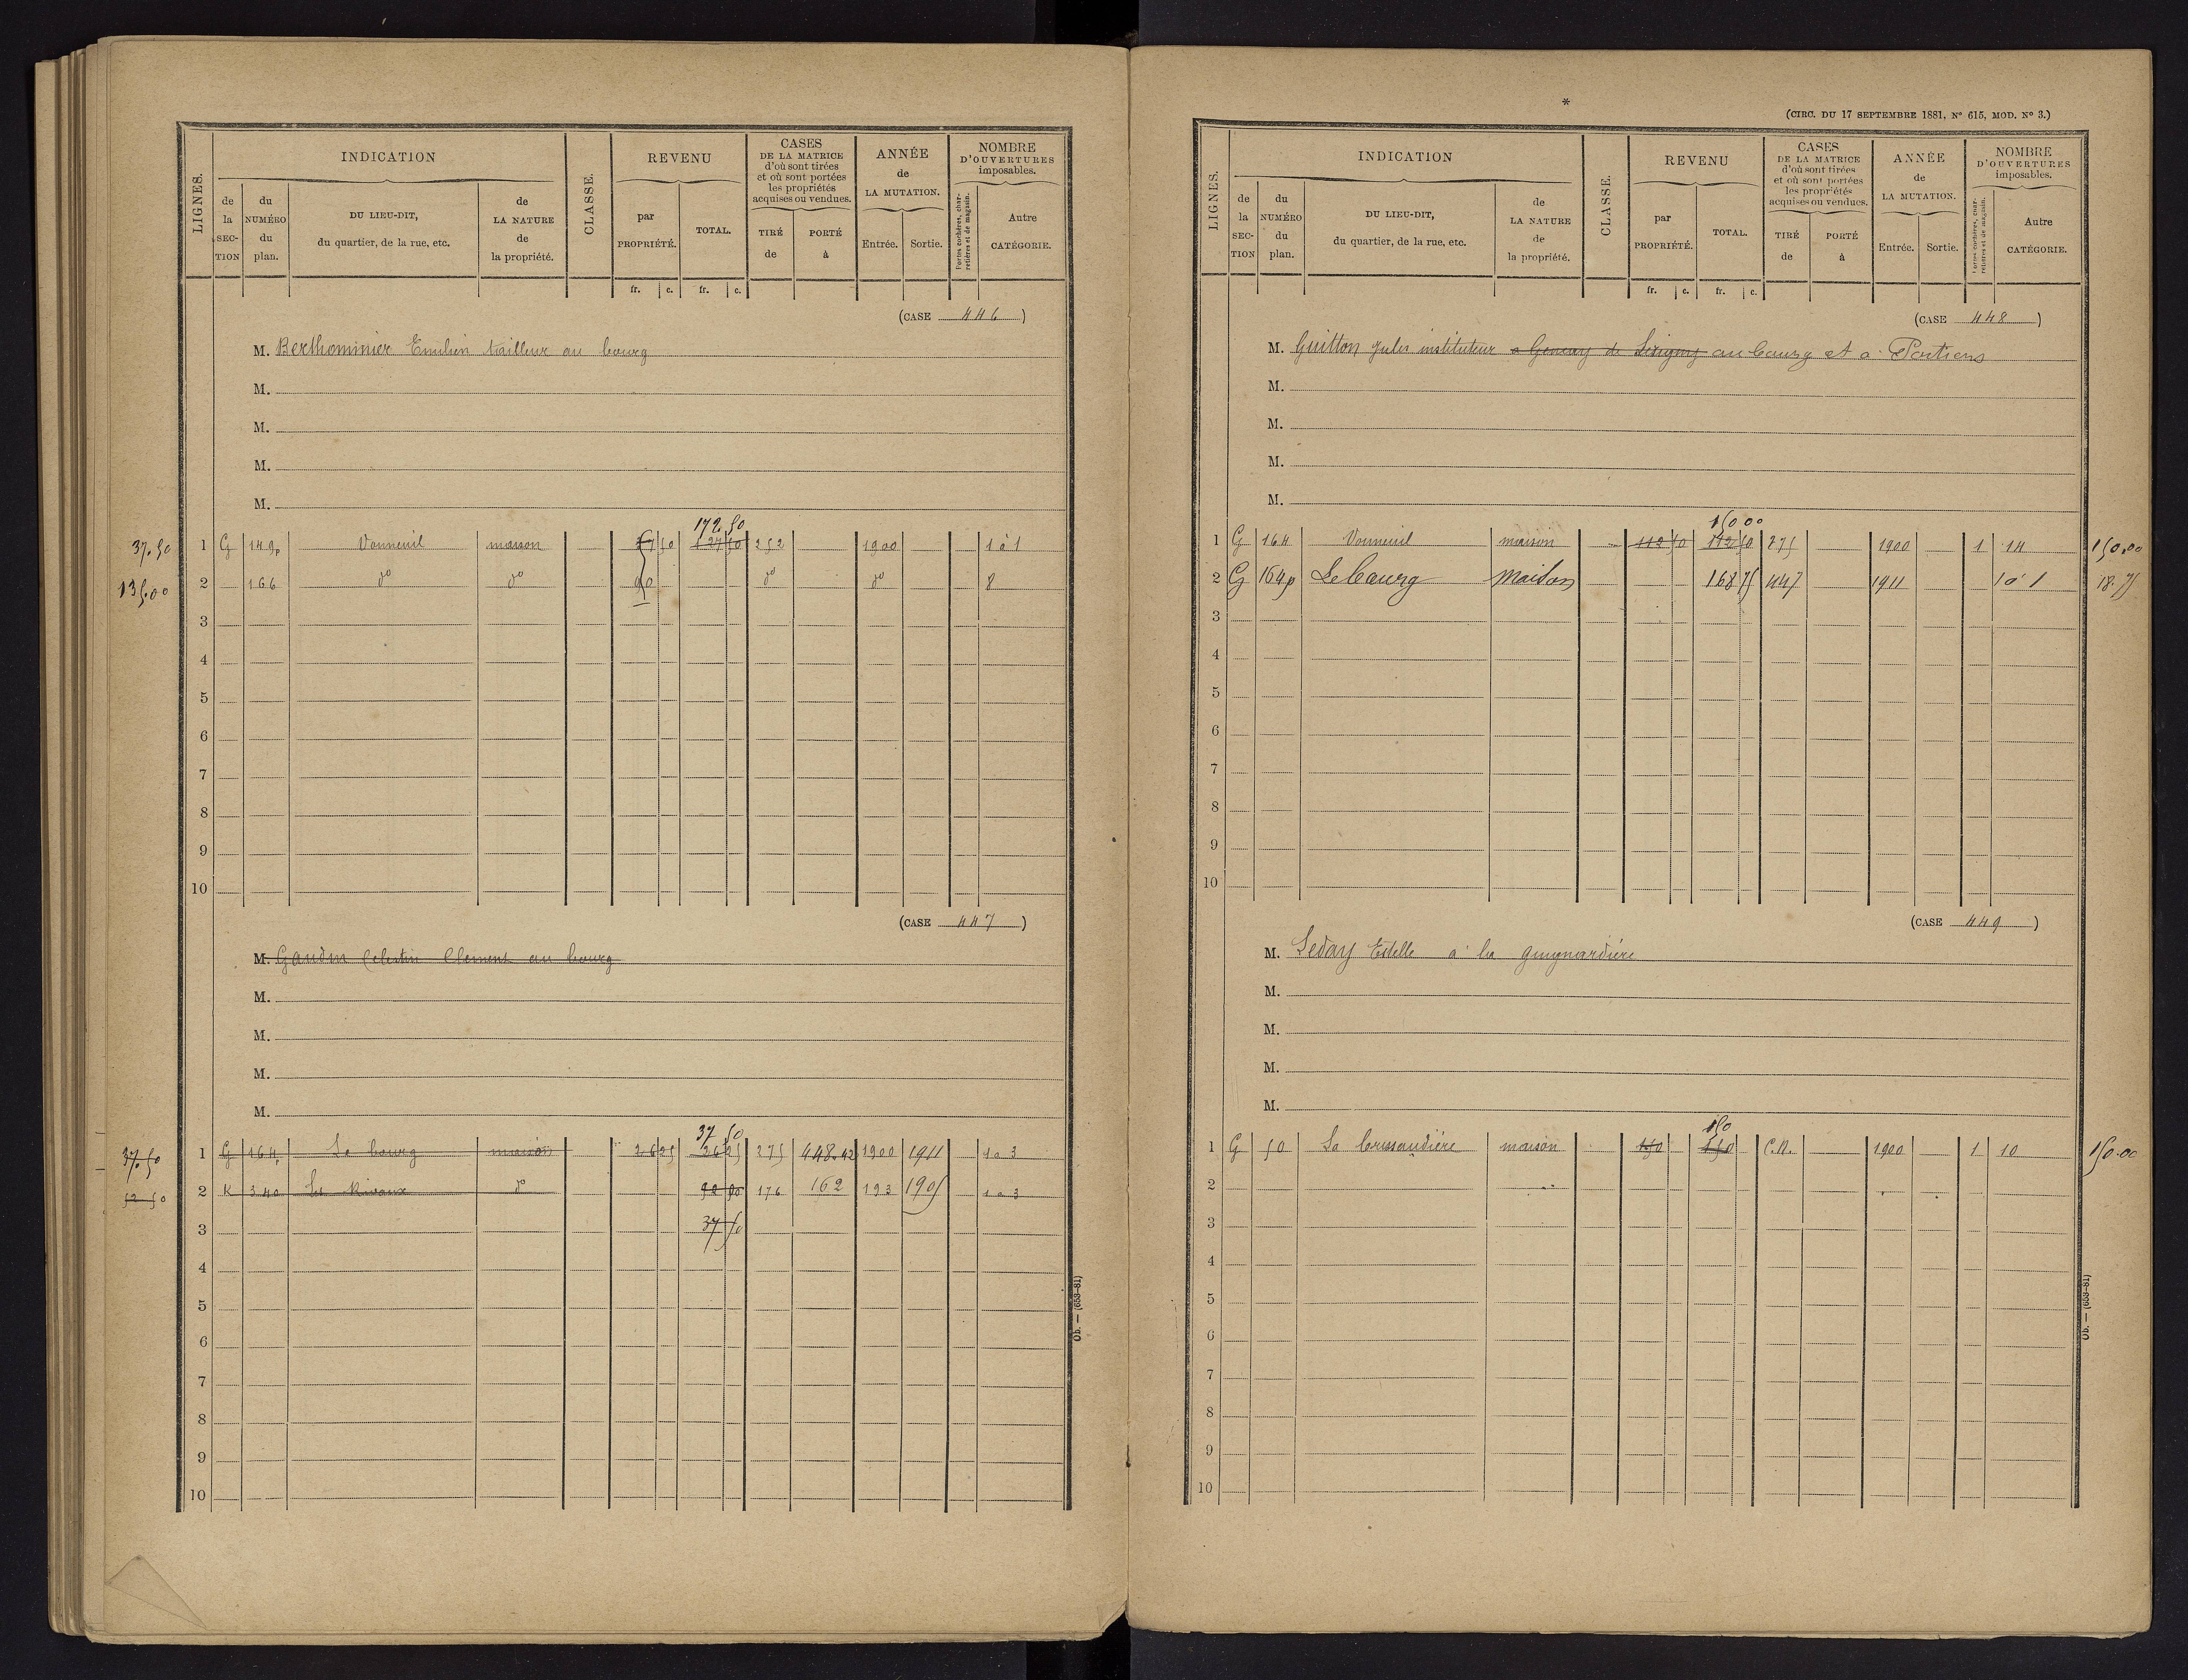 LIGNES.
INDICATION
de la SECTION
du NUMÉRO du plan.
DU LIEU-DIT, du quartier, de la rue, etc.
de LA NATURE de la propriété.
CLASSE.
REVENU
par PROPRIÉTÉ.
TOTAL.
CASES DE LA MATRICE d'où sont tirées et où sont portées les propriétés acquises ou vendues.
TIRÉ de
PORTÉ à
ANNÉE de LA MUTATION.
Entrée. Sortie.
NOMBRE D'OUVERTURES imposables.
Portes cochères, charretières et de magasin.
Autre CATÉGORIE.
fr. c. fr. c.
(CASE 446)
M. Berthominier Emilien tailleur au bourg
M.
M.
M.
M.
172 50
37.50 1 G 149p Vonneuil maison 50 127 50 252 1900 1 à 1
135.00 2 166 d° d° 90 d° d° 8
3
4
5
6
7
8
9
10
(CASE 447)
M. Gaudin Célestin Clément au bourg
M.
M.
M.
M.
37 50
37.50 1 G 164p Le bourg maison 26 25 26 25 275 448.42 1900 1911 1 a 3
52 50 2 K 340 Les Rivaux d° 92 50 176 162 193 1905 1 a 3
3 37 50
4
5
6
7
8
9
10
Ob. — (653-81)
*
(CIRC. DU 17 SEPTEMBRE 1881, N° 615, MOD. N° 3.)
LIGNES.
INDICATION
de la SECTION
du NUMÉRO du plan.
DU LIEU-DIT, du quartier, de la rue, etc.
de LA NATURE de la propriété.
CLASSE.
REVENU
par PROPRIÉTÉ.
TOTAL.
CASES DE LA MATRICE d'où sont tirées et où sont portées les propriétés acquises ou vendues.
TIRÉ de
PORTÉ à
ANNÉE de LA MUTATION.
Entrée. Sortie.
NOMBRE D'OUVERTURES imposables.
Portes cochères, charretières et de magasin.
Autre CATÉGORIE.
fr. c. fr. c.
(CASE 448)
M. Guitton Jules instituteur a Gençay de Lésigny au bourg et a Poitiers
M.
M.
M.
M.
150 00
1 G 164 Vonneuil maison 112 50 112 50 275 1900 1 14 150.00
2 G 164p Le bourg maison 168 75 447 1911 1 à 1 18.75
3
4
5
6
7
8
9
10
(CASE 449)
M. Leday Estelle a la guignardière
M.
M.
M.
M.
150
1 G 50 La brissaudière maison 150 150 C.N. 1900 1 10 150.00
2
3
4
5
6
7
8
9
10
Ob. — (653-81)